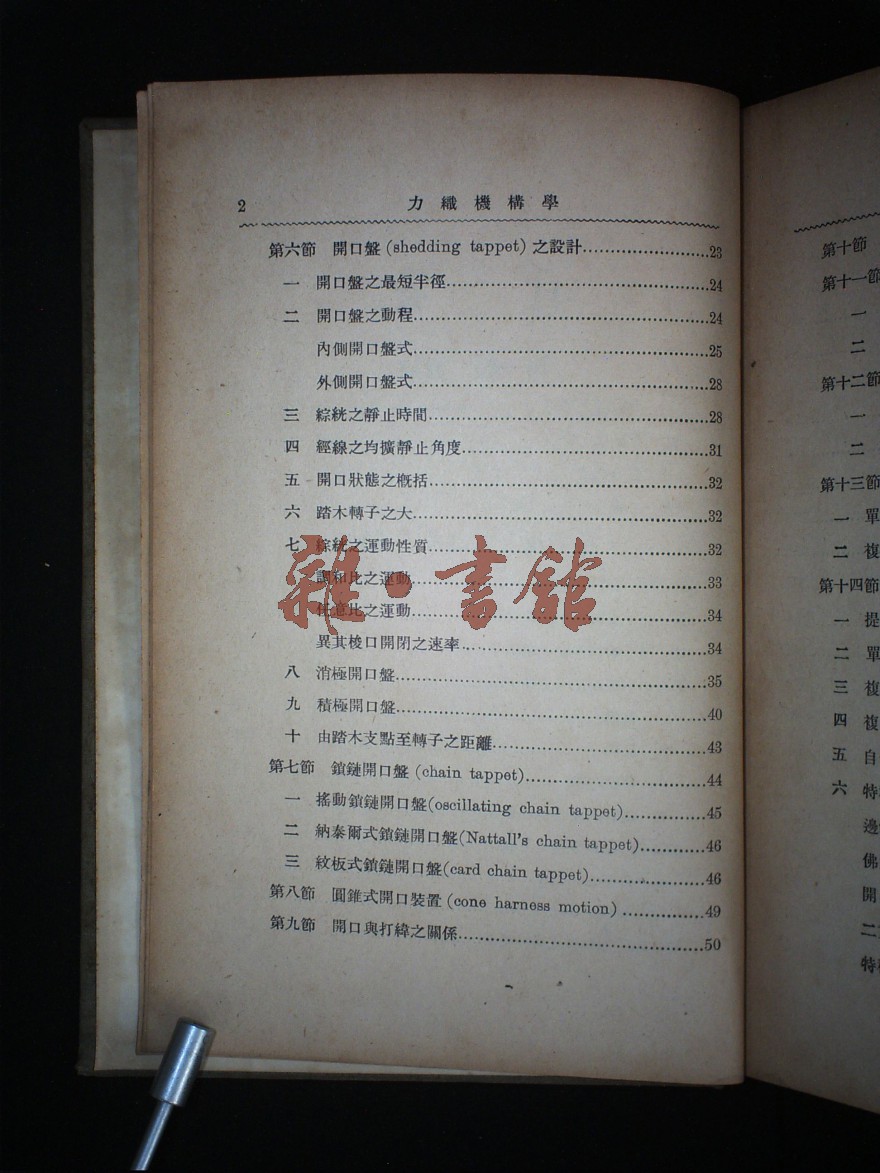 2 力織機構學
第六節 開口盤 (shedding tappet) 之設計........................23
一 開口盤之最短半徑................................................24
二 開口盤之動程......................................................24
內側開口盤式......................................................25
外側開口盤式......................................................28
三 綜絖之靜止時間...................................................28
四 經線之均擴靜止角度.............................................31
五 開口狀態之概括...................................................32
六 踏木轉子之大......................................................32
七 綜絖之運動性質...................................................32
調和比之運動......................................................33
任意比之運動......................................................34
異其梭口開閉之速率.............................................34
八 消極開口盤.........................................................35
九 積極開口盤.........................................................40
十 由踏木支點至轉子之距離.......................................43
第七節 鎖鏈開口盤 (chain tappet).................................44
一 搖動鎖鏈開口盤(oscillating chain tappet)................45
二 納泰爾式鎖鏈開口盤(Nattall's chain tappet)................46
三 紋板式鎖鏈開口盤(card chain tappet).....................46
第八節 圓錐式開口裝置 (cone harness motion) ................49
第九節 開口與打緯之關係.............................................50
雜·書館
第十節
第十一節
一
二
第十二節
一
二
第十三節
一 單
二 複
第十四節
一 提
二 單
三 複
四 複
五 自
六 特
邊
佛
開
二
特